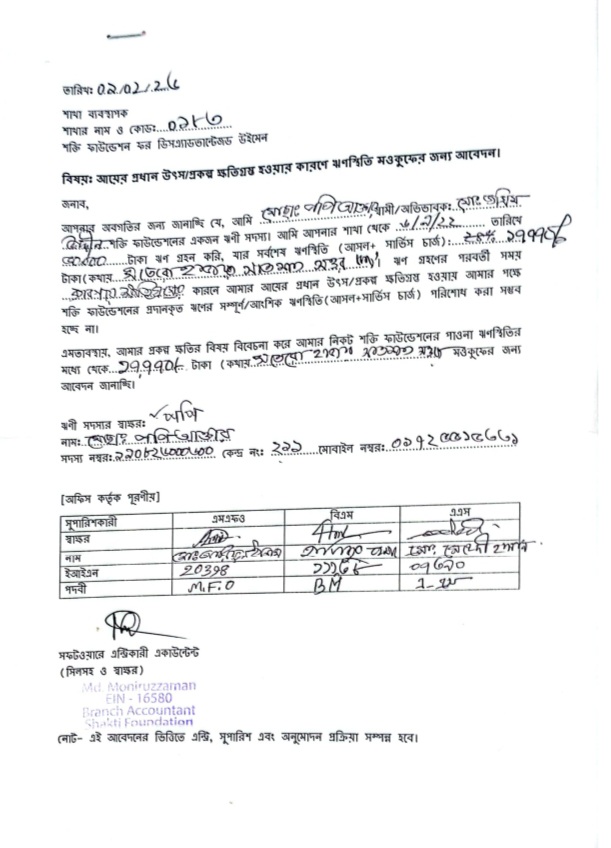 তারিখঃ ০১/০২/২৬
শাখা ব্যবস্থাপক
শাখার নাম ও কোডঃ....০২৮৩
শক্তি ফাউন্ডেশন ফর ডিসএ্যাডভান্টেজড উইমেন
বিষয়: আয়ের প্রধান উৎস/প্রকল্প ক্ষতিগ্রস্ত হওয়ার কারণে ঋণস্থিতি মওকুফের জন্য আবেদন।
জনাব,
আপনার অবগতির জন্য জানাচ্ছি যে, আমি মোছাঃ পপি আক্তার স্বামী/অভিভাবক: মোঃ
শক্তি ফাউন্ডেশনের একজন ঋণী সদস্য। আমি আপনার শাখা থেকে তারিখে
টাকা ঋণ গ্রহন করি, যার সর্বশেষ ঋণস্থিতি (আসল+ সার্ভিস চার্জ): ১৭,৭৭০/-
টাকা (কথায় সতেরো হাজার সাতশত সত্তর ) ঋণ গ্রহণের পরবর্তী সময়
কারণে আমার আয়ের প্রধান উৎস/প্রকল্প ক্ষতিগ্রস্ত হওয়ায় আমার পক্ষে
শক্তি ফাউন্ডেশনের প্রদানকৃত ঋণের সম্পূর্ণ/আংশিক ঋণস্থিতি(আসল+সার্ভিস চার্জ) পরিশোধ করা সম্ভব
হচ্ছে না।
এমতাবস্থায়, আমার প্রকল্প ক্ষতির বিষয় বিবেচনা করে আমার নিকট শক্তি ফাউন্ডেশনের পাওনা ঋণস্থিতির
মধ্যে থেকে..১৭,৭৭০/- টাকা (কথায় সতেরো হাজার সাতশত সত্তর মওকুফের জন্য
আবেদন জানাচ্ছি।
ঋণী সদস্যর স্বাক্ষর: পপি
নাম: মোছাঃ পপি আক্তার
সদস্য নম্বর: কেন্দ্র নং: মোবাইল নম্বর:
[অফিস কর্তৃক পূরণীয়]
সুপারিশকারী এমএফও বিএম এএম
স্বাক্ষর
নাম
ইআইএন 20398 ০৭৬২০
পদবী M.F.O BM
সফটওয়্যারে এন্ট্রিকারী একাউন্টেন্ট
(সিলসহ ও স্বাক্ষর)
Md. Moniruzzaman
EIN - 16580
Branch Accountant
Shakti Foundation
নোট- এই আবেদনের ভিত্তিতে এন্ট্রি, সুপারিশ এবং অনুমোদন প্রক্রিয়া সম্পন্ন হবে।